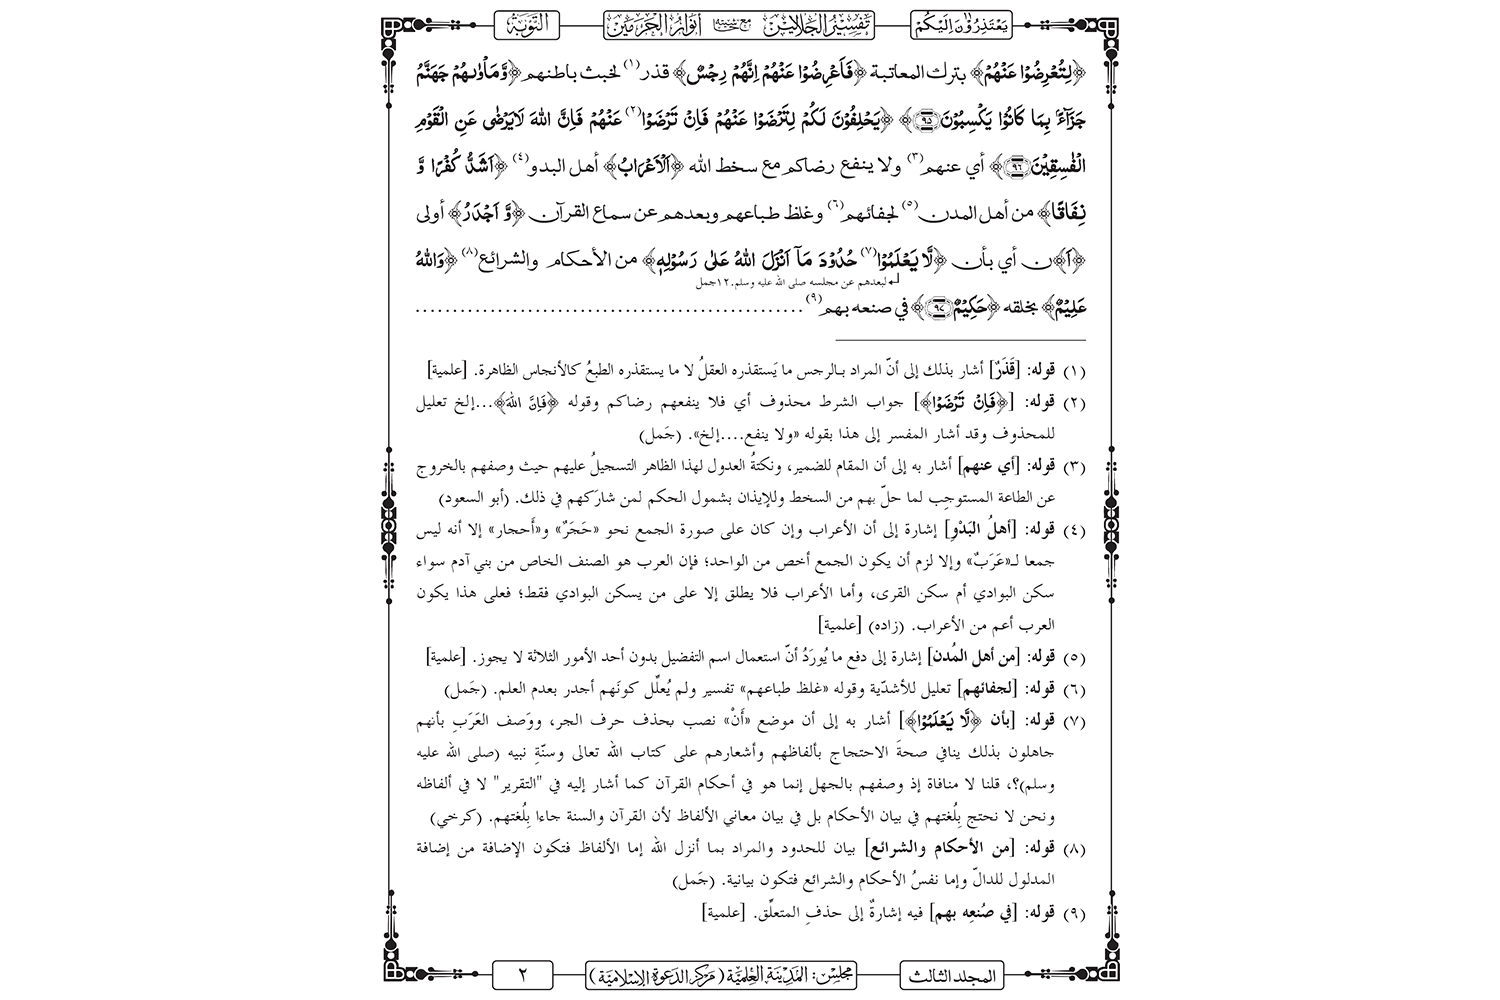 يَعْتَذِرُوْنَ اِلَيْكُمْ
تَفْسِيْرُ الجَلَالَيْن مع حاشية أَنْوَارُ الحَرَمَيْن
التَّوْبَة
﴿لِتُعْرِضُوْا عَنْهُمْ﴾ بترك المعاتبة ﴿فَاَعْرِضُوْا عَنْهُمْ اِنَّهُمْ رِجْسٌ﴾ قذر(١) لخبث باطنهم ﴿وَّمَاْوٰىهُمْ جَهَنَّمُ
جَزَآءًۢ بِمَا كَانُوْا يَكْسِبُوْنَ ٩٥﴾ ﴿يَحْلِفُوْنَ لَكُمْ لِتَرْضَوْا عَنْهُمْ فَاِنْ تَرْضَوْا(٢) عَنْهُمْ فَاِنَّ اللّٰهَ لَايَرْضٰى عَنِ الْقَوْمِ
الْفٰسِقِيْنَ ٩٦﴾ أي عنهم(٣) ولا ينفع رضاكم مع سخط الله ﴿اَلْاَعْرَابُ﴾ أهل البدو(٤) ﴿اَشَدُّ كُفْرًا وَّ
نِفَاقًا﴾ من أهل المدن(٥) لجفائهم(٦) وغلظ طباعهم وبعدهم عن سماع القرآن ﴿وَّ اَجْدَرُ﴾ أولى
﴿اَ﴾ن أي بأن ﴿لَّا يَعْلَمُوْا(٧) حُدُوْدَ مَاۤ اَنْزَلَ اللّٰهُ عَلٰى رَسُوْلِهٖ﴾ من الأحكام والشرائع(٨) ﴿وَاللّٰهُ
لبعدهم عن مجلسه صلى الله عليه وسلم.١٢جمل
عَلِيْمٌ﴾ بخلقه ﴿حَكِيْمٌ ٩٧﴾ في صنعه بهم(٩) ....................................................
(١) قوله: [قَذَرٌ] أشار بذلك إلى أنّ المراد بالرجس ما يَستقذره العقلُ لا ما يستقذره الطبعُ كالأنجاس الظاهرة. [علمية]
(٢) قوله: [﴿فَاِنْ تَرْضَوْا﴾] جواب الشرط محذوف أي فلا ينفعهم رضاكم وقوله ﴿فَاِنَّ اللهَ﴾...إلخ تعليل
للمحذوف وقد أشار المفسر إلى هذا بقوله «ولا ينفع....إلخ». (جَمل)
(٣) قوله: [أي عنهم] أشار به إلى أن المقام للضمير، ونكتةُ العدول لهذا الظاهر التسجيلُ عليهم حيث وصفهم بالخروج
عن الطاعة المستوجِب لما حلّ بهم من السخط وللإيذان بشمول الحكم لمن شاركهم في ذلك. (أبو السعود)
(٤) قوله: [أهلُ البَدْوِ] إشارة إلى أن الأعراب وإن كان على صورة الجمع نحو «حَجَرٌ» و«أَحجار» إلا أنه ليس
جمعا لـ«عَرَبٌ» وإلا لزم أن يكون الجمع أخص من الواحد؛ فإن العرب هو الصنف الخاص من بني آدم سواء
سكن البوادي أم سكن القرى، وأما الأعراب فلا يطلق إلا على من يسكن البوادي فقط؛ فعلى هذا يكون
العرب أعم من الأعراب. (زاده) [علمية]
(٥) قوله: [من أهل المُدن] إشارة إلى دفع ما يُورَدُ أنّ استعمال اسم التفضيل بدون أحد الأمور الثلاثة لا يجوز. [علمية]
(٦) قوله: [لجفائهم] تعليل للأشدّية وقوله «غلظ طباعهم» تفسير ولم يُعلِّل كونَهم أجدر بعدم العلم. (جَمل)
(٧) قوله: [بأن ﴿لَّا يَعْلَمُوْا﴾] أشار به إلى أن موضع «أَنْ» نصب بحذف حرف الجر، ووَصف العَرَبِ بأنهم
جاهلون بذلك ينافي صحةَ الاحتجاج بألفاظهم وأشعارهم على كتاب الله تعالى وسنّةِ نبيه (صلى الله عليه
وسلم)؟، قلنا لا منافاة إذ وصفهم بالجهل إنما هو في أحكام القرآن كما أشار إليه في "التقرير" لا في ألفاظه
ونحن لا نحتج بِلُغتهم في بيان الأحكام بل في بيان معاني الألفاظ لأن القرآن والسنة جاءا بِلُغتهم. (كرخي)
(٨) قوله: [من الأحكام والشرائع] بيان للحدود والمراد بما أنزل الله إما الألفاظ فتكون الإضافة من إضافة
المدلول للدالّ وإما نفسُ الأحكام والشرائع فتكون بيانية. (جَمل)
(٩) قوله: [في صُنعِه بهم] فيه إشارةٌ إلى حذفِ المتعلِّق. [علمية]
المجلد الثالث
مجلس: المَدِيْنَة العِلْمِيَّة (مَرْكَز الدعوة الإسلاميّة)
٢